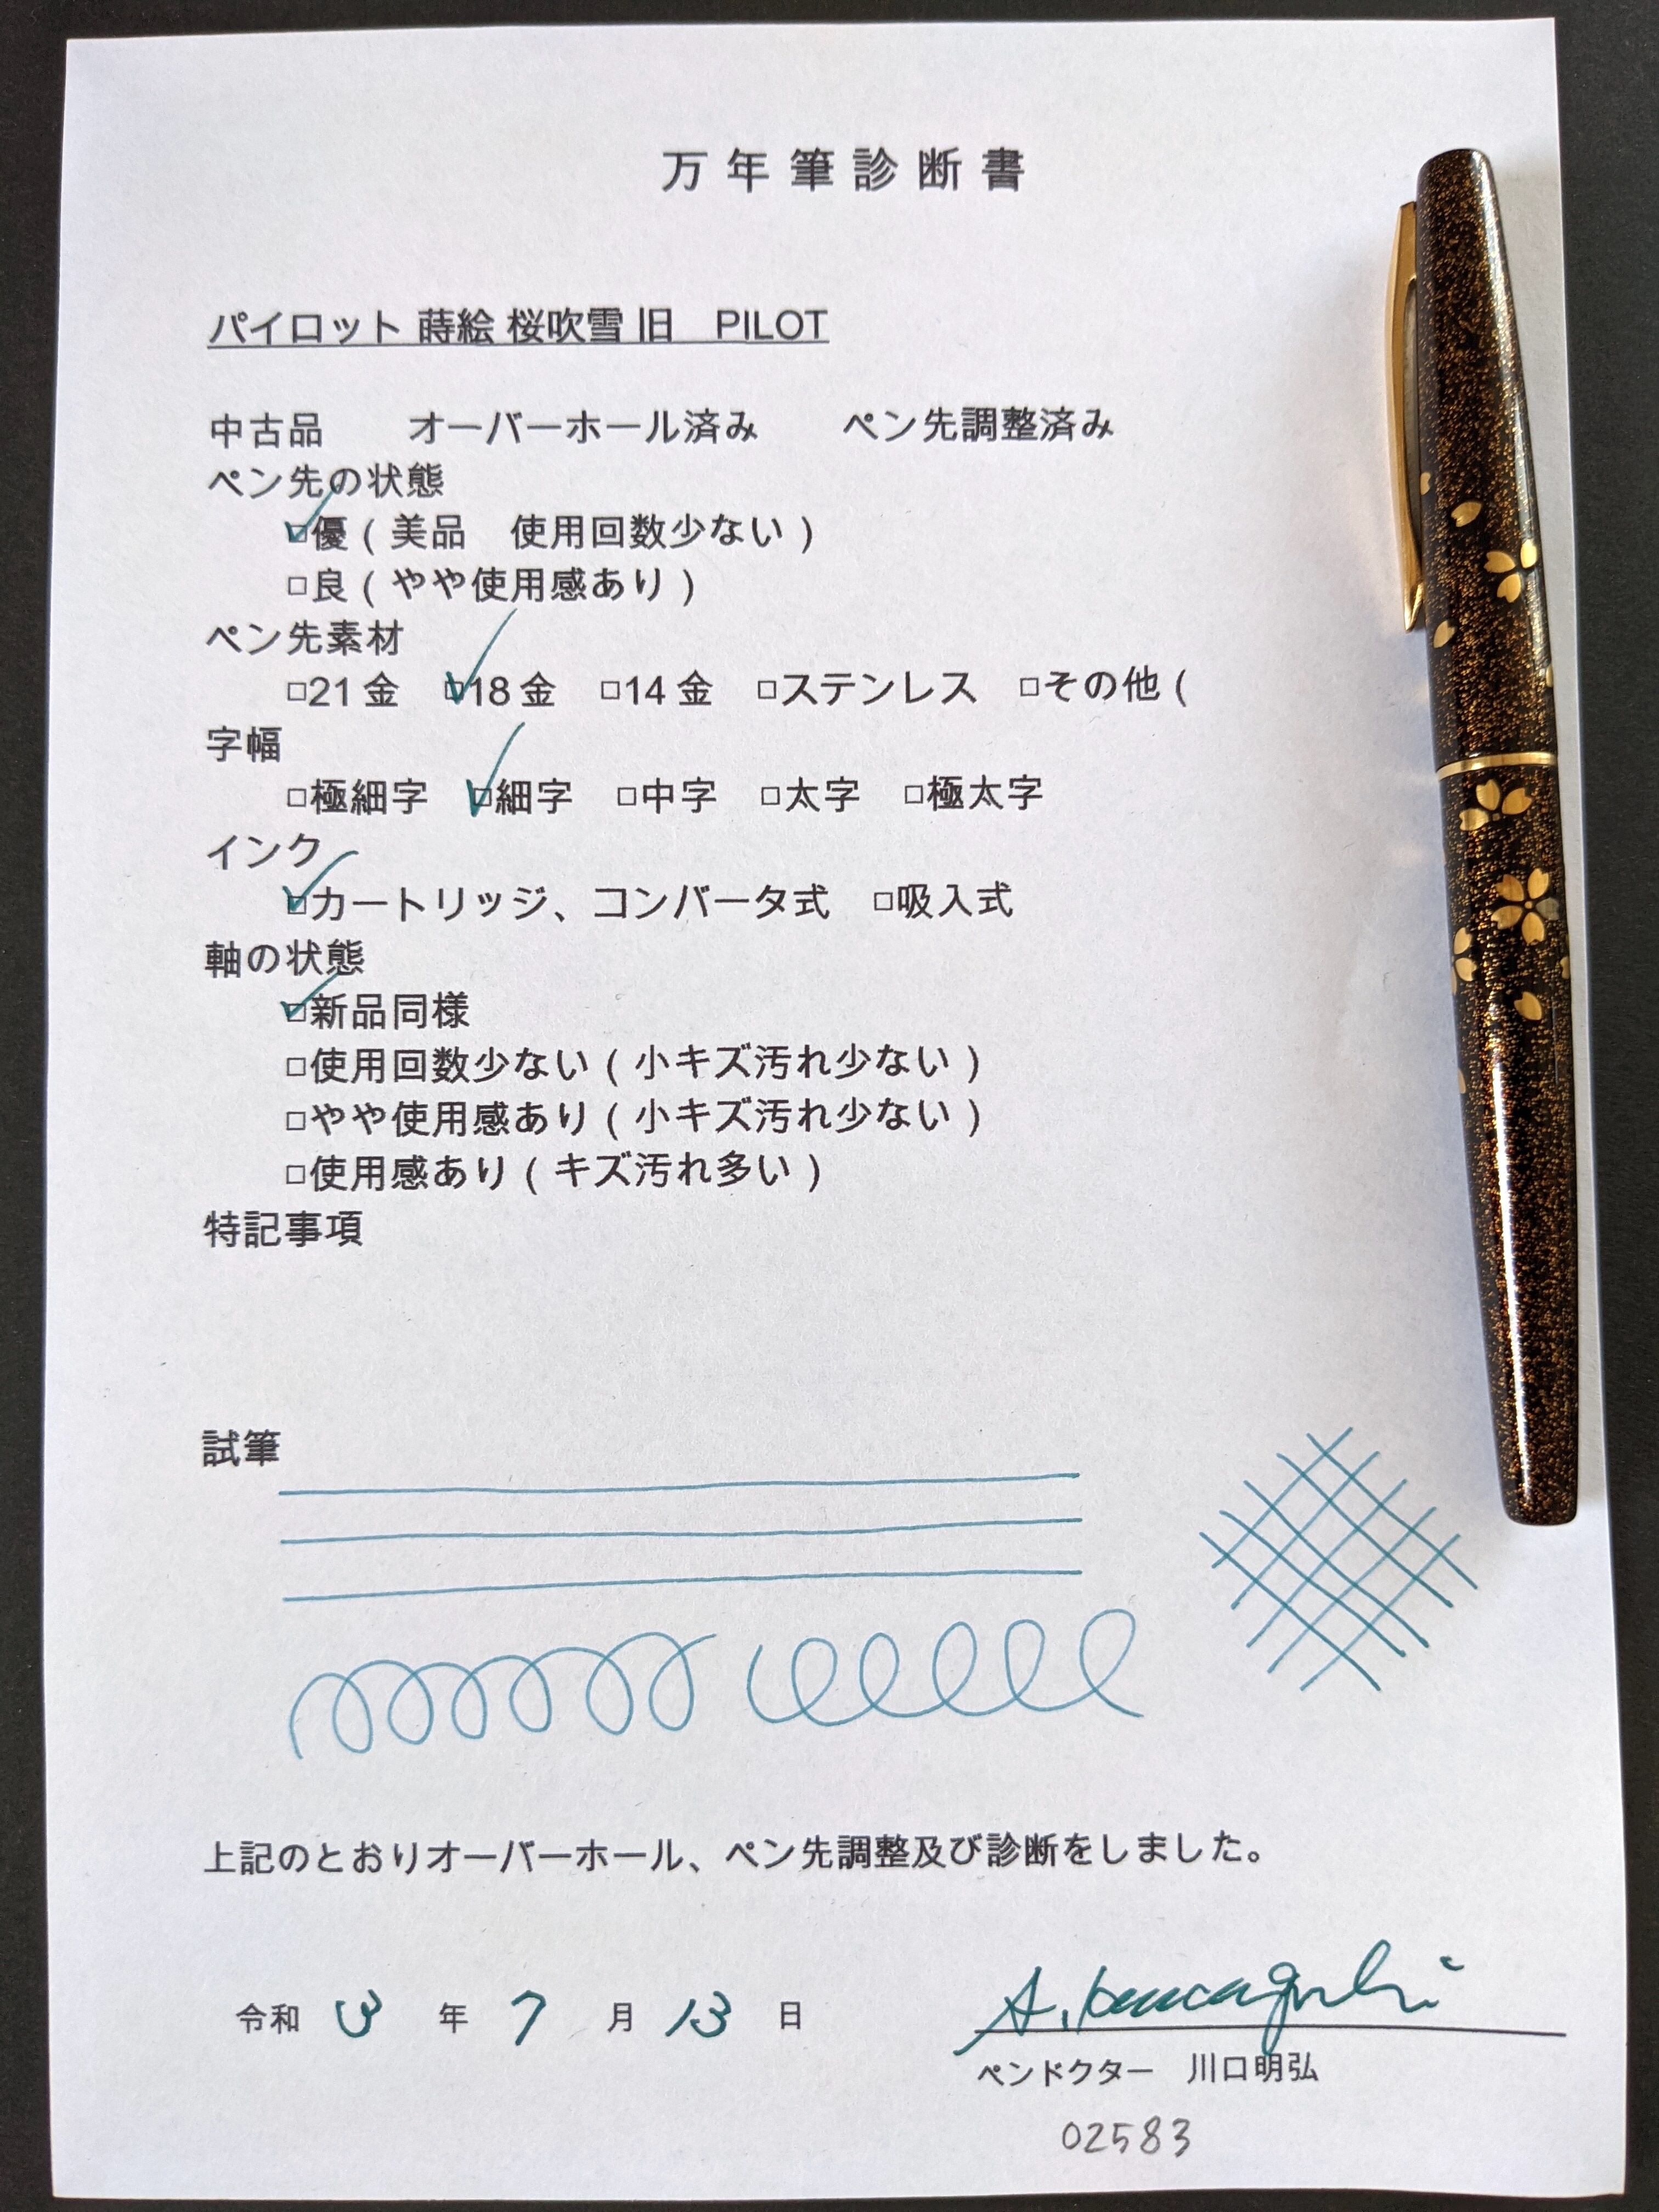 万年筆診断書
パイロット 蒔絵 桜吹雪 旧　PILOT
中古品　　オーバーホール済み　　ペン先調整済み
ペン先の状態
☑優（美品　使用回数少ない）
□良（やや使用感あり）
ペン先素材
□21金　☑18金　□14金　□ステンレス　□その他（
字幅
□極細字　☑細字　□中字　□太字　□極太字
インク
☑カートリッジ、コンバータ式　□吸入式
軸の状態
☑新品同様
□使用回数少ない（小キズ汚れ少ない）
□やや使用感あり（小キズ汚れ少ない）
□使用感あり（キズ汚れ多い）
特記事項
試筆
上記のとおりオーバーホール、ペン先調整及び診断をしました。
令和 3 年 7 月 13 日
A. Kawaguchi
ペンドクター　川口明弘
02583